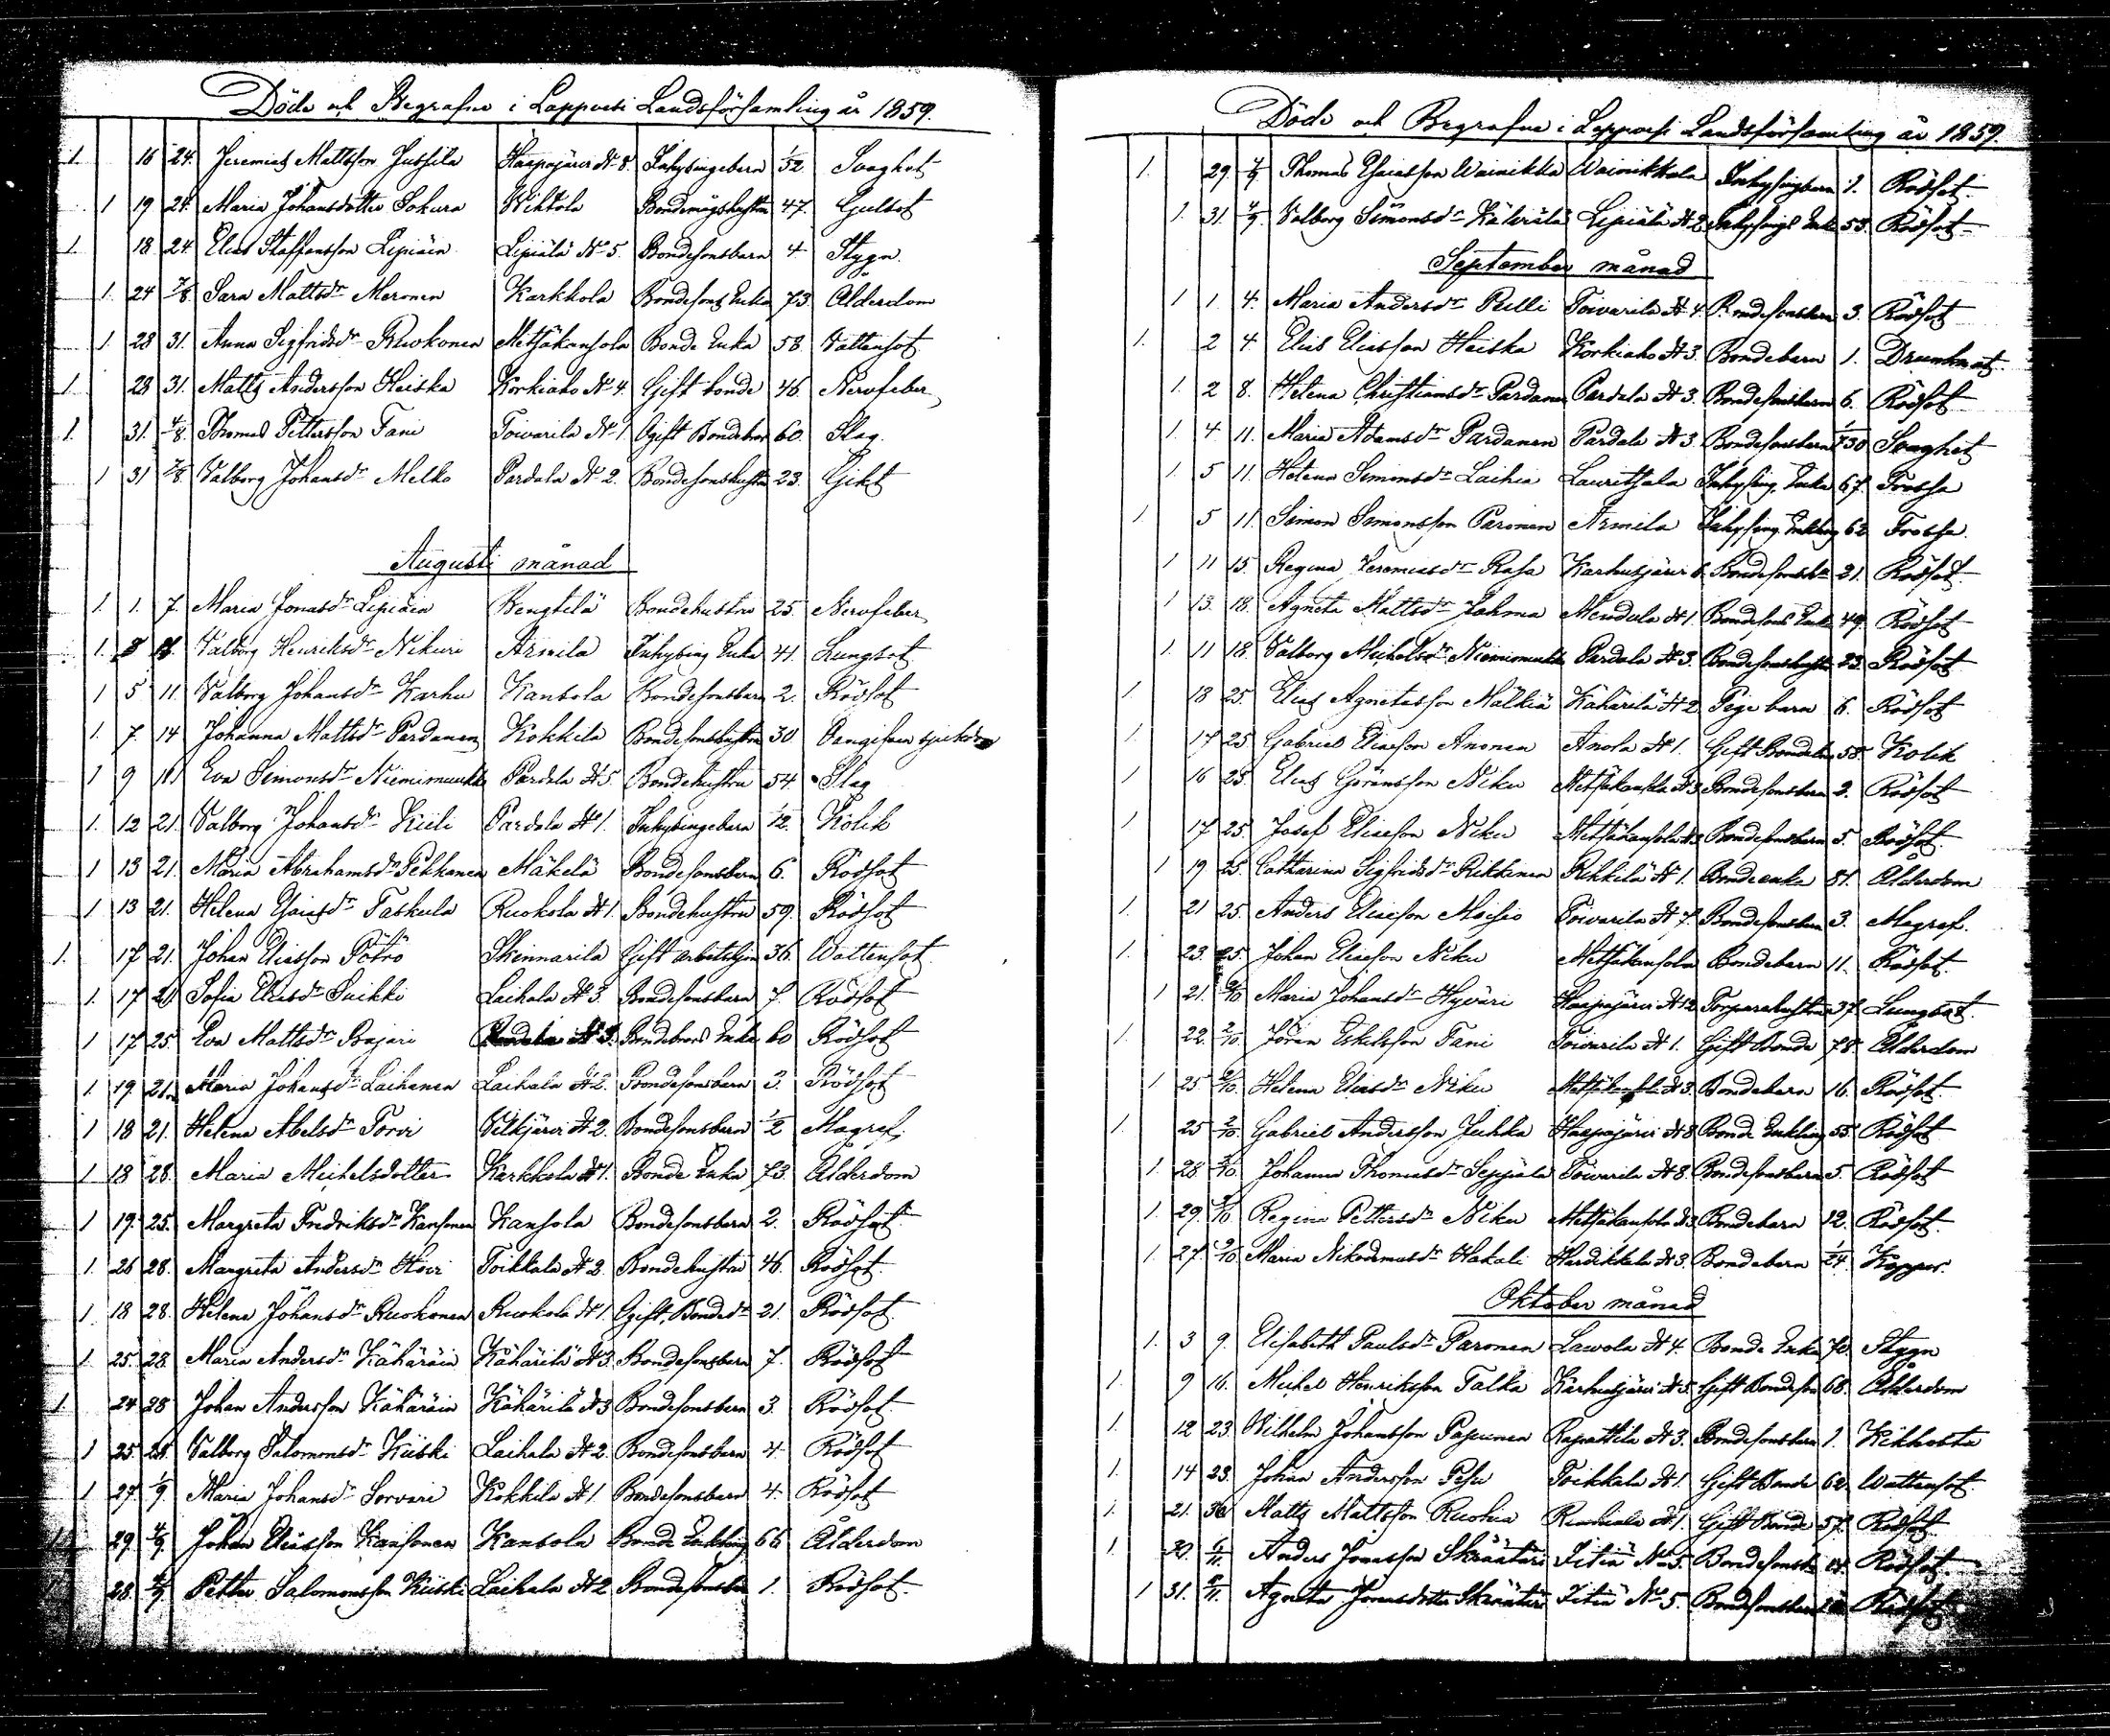 Döde och Begrafne i Lappvesi Landsförsamling år 1859.
1. 16 24. Jeremias Mattsson Jussila Haapajärvi No 8. Inhysingebarn 1/52 Svaghet
1 19 24. Maria Johansdotter Sokura Wihtola 47. Gulsot
1. 18 24 Elias Staffansson Lipiäin Lipiälä No 5. Bondesonsbarn 4 Stygn
1. 24 7/8 Sara Mattsdr Meronen Karkkola Bondesons Enka 73. Ålderdom
1. 28 31. Anna Sigfridsdr Ruokonen Metsäkansola Bonde Enka 58. Vattensot
1. 28 31. Matts Andersson Heiska Korkiaho No 4. Gift bonde 46. Nervfeber
1. 31. 4/8. Thomas Pettersson Tani Toivarila No 1 Ogift 60. Slag.
1 31 7/8. Valborg Johansdr Melko Pardala No 2. Bondesonshustru 23. Gikt
Augusti månad
1. 1. 7. Maria Jonasdr Lipiäin Bengtilä Bondehustru 25. Nervfeber
1. 8. Valborg Henriksdr Nikuri Armila Inhysing Enka 41. Lungsot
1 5 11. Valborg Johansdr Karhu Kansola Bondesonsbarn 2. Rödsot
1. 7. 14 Johanna Mattsdr Pardanen Kokkila Bondesonshustru 30
1 9 11. Eva Simonsdr Niemimuukko Pardala No 5. Bondehustru 54. Slag
1. 12 21. Valborg Johansdr Kiili Pardala No 1. Inhysingebarn 1/12. Kolik
1 13 21. Maria Abrahamsdr Pekkanen Mäkelä Bondesonsbarn 6. Rödsot
1 13 21. Helena Esaiasdr Taskula Ruokola No 1. Bondehustru 59. Rödsot
1. 17 21. Johan Eliasson Pötrö Skinnarila Gift 36. Wattensot
1. 17 21 Sofia Eliasdr Suikki Laihala No 3. Bondesonsbarn 7. Rödsot
1 17 25. Eva Mattsdr Pajari Enka 60 Rödsot
1. 19. 21. Maria Johansdr Laihanen Laihala No 2. Bondesonsbarn 3. Rödsot
1 18 21. Helena Abelsdr Torvi Vilkjärvi No 2. Bondesonsbarn 1/2 Magref.
1 18 28. Maria Michelsdotter Karkkola No 1. Bonde Enka 73. Ålderdom
1 19. 25. Margreta Fredriksdr Kansonen Kansola Bondesonsbarn 2. Rödsot
1. 26 28. Margreta Andersdr Hovi Toikkala No 2. Bondehustru 46. Rödsot
1. 18 28. Helena Johansdr Ruokonen Ruokola No 1. Ogift, Bondedr 21. Rödsot
1 25. 28. Maria Andersdr Kähäräin Kähärilä No 3. Bondesonsbarn 7. Rödsot
1 24 28 Johan Andersson Kähäräin Kähärilä No 3 Bondesonsbarn 3. Rödsot
1 25. 28. Valborg Salomonsdr Kiiski Laihala No 2. Bondesonsbarn 4. Rödsot
1 27. 1/9. Maria Johansdr Sorvari Kokkila No 1 Bondesonsbarn 4. Rödsot
1. 29. 4/9. Johan Eliasson Kansonen Kansola Bonde Enkling 66 Ålderdom
28. 4/9. Petter Salomonsson Kiiski Laihala No 2 1. Rödsot
Döde och Begrafne i Lappvesi Landsförsamling år 1859.
1. 29. 4/9 Thomas Esaiasson Wainikka Wainikkala Inhysingbarn 1. Rödsot.
1. 31. 4/9. Valborg Simonsdr Lipiälä No 2 Inhysings Enka 53. Rödsot
September månad
1 1. 4. Maria Andersdr Pulli Toivarila No 4. Bondesonsbarn 3. Rödsot
1. 2 4. Elias Eliasson Heiska Korkiaho No 3. Bondebarn 1. Drunknat
1. 2 8. Helena Christiansdr Pardanen Pardala No 3. Bondesonsbarn 6. Rödsot
1. 4 11. Maria Adamsdr Pardanen Pardala No 3. Bondesonsbarn Svaghet
1. 5 11. Helena Simonsdr Laihia Lauritsala Inhysing, Enka 67. Frossa
1 5 11. Simon Simonsson Paronen Armila Inhysing Enkling 62 Frossa.
1 11 15. Regina Jeremiasdr Rasa Karhusjärvi 21. Rödsot.
1 13. 18. Agneta Mattsdr Jahma Mendula No 1. Bondesons Enka 49. Rödsot
1. 11 18. Valborg Michelsdr Niemimuukko Pardala No 3. Bondesonshustru Rödsot
1. 18 25. Elias Agnetasson Mälkiä Kähärilä No 2 Pige barn 6. Rödsot
1 17 25 Gabriel Eliasson Anonen Anola No 1. Gift 58. Kolik
1 16 25. Elias Göransson Niku Metsäkansola No 3 Bondesonsbarn 2. Rödsot
1 17 25. Josef Eliasson Niku Metsäkansola No 3 Bondesonsbarn 5. Rödsot.
1 19 25. Catharina Sigfridsdr Rikkinen Rikkilä No 1. Bondeenka 81. Ålderdom
1. 21 25. Anders Eliasson Moisio Toivarila No 7. Bondesonsbarn 3. Magref.
1. 23. 25. Johan Eliasson Niku Metsäkansola Bondebarn 11. Rödsot.
1 21. 2/10 Maria Johansdr Hyväri Haapajärvi No 12 Torparehustru 37. Lungsot.
1. 22. 2/10. Jöran Eskelsson Tani Toivarila No 1. Gift Bonde 78. Ålderdom
1 25 2/10. Helena Eliasdr Niku Metsäkansola No 3. Bondebarn 16. Rödsot.
1 25 2/10. Gabriel Andersson Juhka Haapajärvi No 8 Bonde Enkling 55. Rödsot
1. 28 2/10. Johanna Thomasdr Seppälä Toivarila No 8. Bondesonsbarn 5. Rödsot
1. 29. 2/10. Regina Pettersdr Niku Metsäkansola No 3 Bondebarn 12. Rödsot.
1. 27. 2/10. Maria Nikodemusdr Hakali Hurdikkala No 3. Bondebarn 1/24. Koppor.
Oktober månad
1. 3 9. Elisabeth Paulsdr Paronen Lavola No 4. Bonde Enka 70. Stygn
1. 9 16. Michel Henriksson Talka Karhusjärvi No 5. Gift Bondeson 68. Ålderdom
1 12 23. Wilhelm Johansson Papunen Rapattila No 3. Bondesonsbarn 1. Kikhosta
1. 14 23. Johan Andersson Pesu Toikkala No 1. Gift Bonde 62 Wattensot.
1. 21. 30 Matts Mattsson Ruohia No 1. Gift Bonde 57. Rödsot.
1 20. 6/11. Anders Jonasson Skrääteri Iitiä No 5. Rödsot.
1 31. 6/11. Agneta Jonasdotter Skrääteri Iitiä No 5. Bondesonsbarn Rödsot.